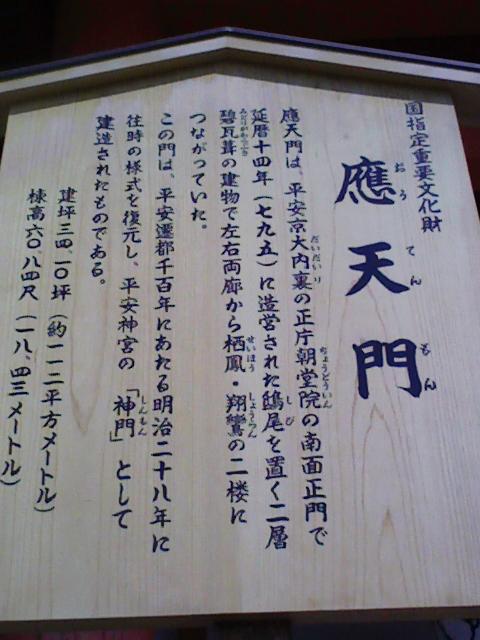 国指定重要文化財
應天門
おうてんもん
應天門は、平安京大内裏の正庁朝堂院の南面正門で
だいだいり
ちょうどういん
延暦十四年(七九五)に造営された鴟尾を置く二層
しび
碧瓦葺の建物で左右両廊から栖鳳・翔鸞の二楼に
みどりがわらぶき
せいほう
しょうらん
つながっていた。
この門は、平安遷都千百年にあたる明治二十八年に
往時の様式を復元し、平安神宮の「神門」として
しんもん
建造されたものである。
建坪三四.一〇坪(約一一二平方メートル)
棟高六〇.八四尺(一八.四三メートル)